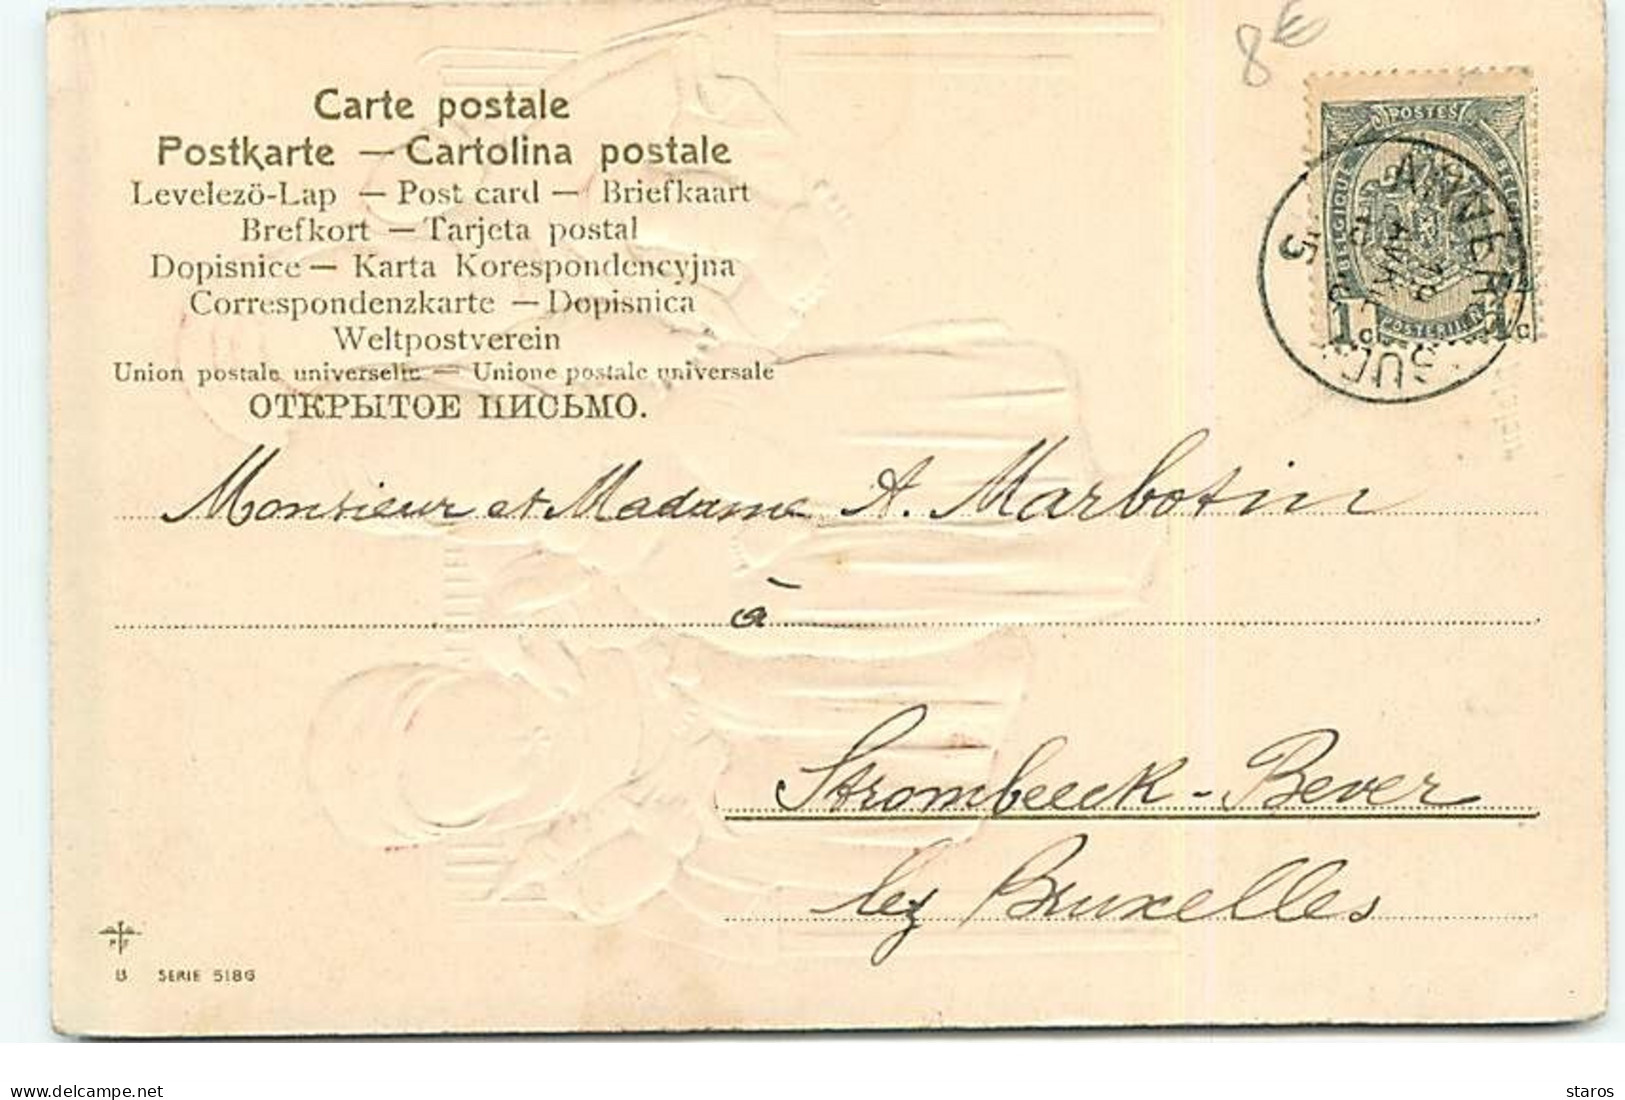 8€
Carte postale
Postkarte — Cartolina postale
Levelezö-Lap — Post card — Briefkaart
Brefkort — Tarjeta postal
Dopisnice — Karta Korespondencyjna
Correspondenzkarte — Dopisnica
Weltpostverein
Union postale universelle — Unione postale universale
ОТКРЫТОЕ ПИСЬМО.
POSTES
BELGIQUE
1c
Monsieur et Madame A. Marbotin
à
Strombeeck-Bever
lez Bruxelles
PF
B SERIE 5186
delcampe.net
staros